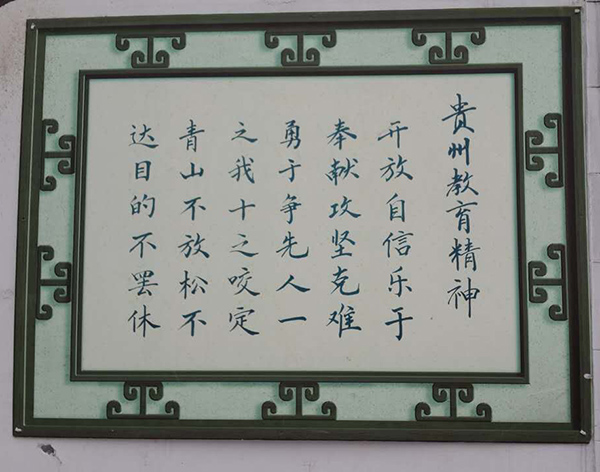 贵州教育精神
开放自信乐于
奉献攻坚克难
勇于争先人一
之我十之咬定
青山不放松不
达目的不罢休